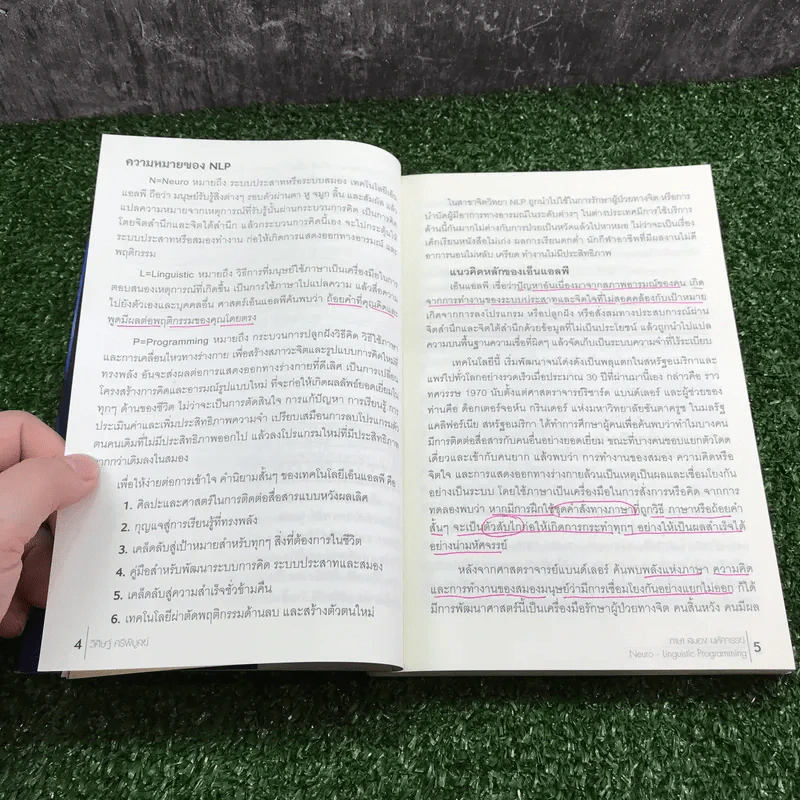 ความหมายของ NLP
N=Neuro หมายถึง ระบบประสาทหรือระบบสมอง เทคโนโลยีเอ็น
แอลพี ถือว่า มนุษย์รับรู้สิ่งต่างๆ รอบตัวผ่านตา หู จมูก ลิ้น และสัมผัส แล้ว
แปลความหมายจากเหตุการณ์ที่รับรู้นั้นผ่านกระบวนการคิด เป็นการคิด
โดยจิตสำนึกและจิตใต้สำนึก แล้วกระบวนการคิดนี้เอง จะไปกระตุ้นให้
ระบบประสาทหรือสมองทำงาน ก่อให้เกิดการแสดงออกทางอารมณ์ และ
พฤติกรรม
L=Linguistic หมายถึง วิธีการที่มนุษย์ใช้ภาษาเป็นเครื่องมือในการ
ตอบสนองเหตุการณ์ที่เกิดขึ้น เป็นการใช้ภาษาไปแปลความ แล้วสื่อความ
ไปยังตัวเองและบุคคลอื่น ศาสตร์เอ็นแอลพีค้นพบว่า ถ้อยคำที่คุณคิดและ
พูดมีผลต่อพฤติกรรมของคุณโดยตรง
P=Programming หมายถึง กระบวนการปลูกฝังวิธีคิด วิธีใช้ภาษา
และการเคลื่อนไหวทางร่างกาย เพื่อสร้างสภาวะจิตและรูปแบบการคิดใหม่ที่
ทรงพลัง อันจะส่งผลต่อการแสดงออกทางร่างกายที่ดีเลิศ เป็นการเปลี่ยน
โครงสร้างการคิดและอารมณ์รูปแบบใหม่ ที่จะก่อให้เกิดผลลัพธ์ยอดเยี่ยมใน
ทุกๆ ด้านของชีวิต ไม่ว่าจะเป็นการตัดสินใจ การแก้ปัญหา การเรียนรู้ การ
ประเมินค่าและเพิ่มประสิทธิภาพความจำ เปรียบเสมือนการลบโปรแกรมตัว
ตนคนเดิมที่ไม่มีประสิทธิภาพออกไป แล้วลงโปรแกรมใหม่ที่มีประสิทธิภาพ
มากกว่าเดิมลงในสมอง
เพื่อให้ง่ายต่อการเข้าใจ คำนิยามสั้นๆ ของเทคโนโลยีเอ็นแอลพี คือ
1. ศิลปะและศาสตร์ในการติดต่อสื่อสารแบบหวังผลเลิศ
2. กุญแจสู่การเรียนรู้ที่ทรงพลัง
3. เคล็ดลับสู่เป้าหมายสำหรับทุกๆ สิ่งที่ต้องการในชีวิต
4. คู่มือสำหรับพัฒนาระบบการคิด ระบบประสาทและสมอง
5. เคล็ดลับสู่ความสำเร็จชั่วข้ามคืน
6. เทคโนโลยีผ่าตัดพฤติกรรมด้านลบ และสร้างตัวตนใหม่
4 วิศิษฐ์ ศรีพิบูลย์
ในสาขาจิตวิทยา NLP ถูกนำไปใช้ในการรักษาผู้ป่วยทางจิต หรือการ
บำบัดผู้มีอาการทางอารมณ์ในระดับต่างๆ ในต่างประเทศมีการใช้บริการ
ด้านนี้กันมากไม่ต่างกับการป่วยเป็นหวัดแล้วไปหาหมอ ไม่ว่าจะเป็นเรื่อง
เด็กเรียนหนังสือไม่เก่ง ผลการเรียนตกต่ำ นักกีฬาอาชีพที่มีผลงานไม่ดี
อาการนอนไม่หลับ เครียด ทำงานไม่มีประสิทธิภาพ
แนวคิดหลักของเอ็นแอลพี
เอ็นแอลพี เชื่อว่าปัญหาอันเนื่องมาจากสภาพอารมณ์ของคน เกิด
จากการทำงานของระบบประสาทและจิตใจที่ไม่สอดคล้องกับเป้าหมาย
เกิดจากการลงโปรแกรม หรือปลูกฝัง หรือสั่งสมทางประสบการณ์ผ่าน
จิตสำนึกและจิตใต้สำนึกด้วยข้อมูลที่ไม่เป็นประโยชน์ แล้วถูกนำไปแปล
ความบนพื้นฐานความเชื่อที่ผิดๆ แล้วจัดเก็บเป็นระบบความจำที่ไร้ระเบียบ
เทคโนโลยีนี้ เริ่มพัฒนาจนโด่งดังเป็นพลุแตกในสหรัฐอเมริกาและ
แพร่ไปทั่วโลกอย่างรวดเร็วเมื่อประมาณ 30 ปีที่ผ่านมานี้เอง กล่าวคือ ราว
ทศวรรษ 1970 นับตั้งแต่ศาสตราจารย์ริชาร์ด แบนด์เลอร์ และผู้ช่วยของ
ท่านคือ ด็อกเตอร์จอห์น กรินเดอร์ แห่งมหาวิทยาลัยซันตาครูซ ในมลรัฐ
แคลิฟอร์เนีย สหรัฐอเมริกา ได้ทำการศึกษาผู้คนเพื่อค้นพบว่าทำไมบางคน
มีการติดต่อสื่อสารกับคนอื่นอย่างยอดเยี่ยม ขณะที่บางคนชอบแยกตัวโดด
เดี่ยวและเข้ากับคนยาก แล้วพบว่า การทำงานของสมอง ความคิดหรือ
จิตใจ และการแสดงออกทางร่างกายล้วนเป็นเหตุเป็นผลและเชื่อมโยงกัน
อย่างเป็นระบบ โดยใช้ภาษาเป็นเครื่องมือในการสั่งการหรือคิด จากการ
ทดลองพบว่า หากมีการฝึกใช้ชุดคำสั่งทางภาษาที่ถูกวิธี ภาษาหรือถ้อยคำ
สั้นๆ จะเป็นตัวสับไกก่อให้เกิดการกระทำทุกๆ อย่างให้เป็นผลสำเร็จได้
อย่างน่ามหัศจรรย์
หลังจากศาสตราจารย์แบนด์เลอร์ ค้นพบพลังแห่งภาษา ความคิด
และการทำงานของสมองมนุษย์ว่ามีการเชื่อมโยงกันอย่างแยกไม่ออก ก็ได้
มีการพัฒนาศาสตร์นี้เป็นเครื่องมือรักษาผู้ป่วยทางจิต คนสิ้นหวัง คนมีผล
ภาษา สมอง มหัศจรรย์
Neuro - Linguistic Programming 5